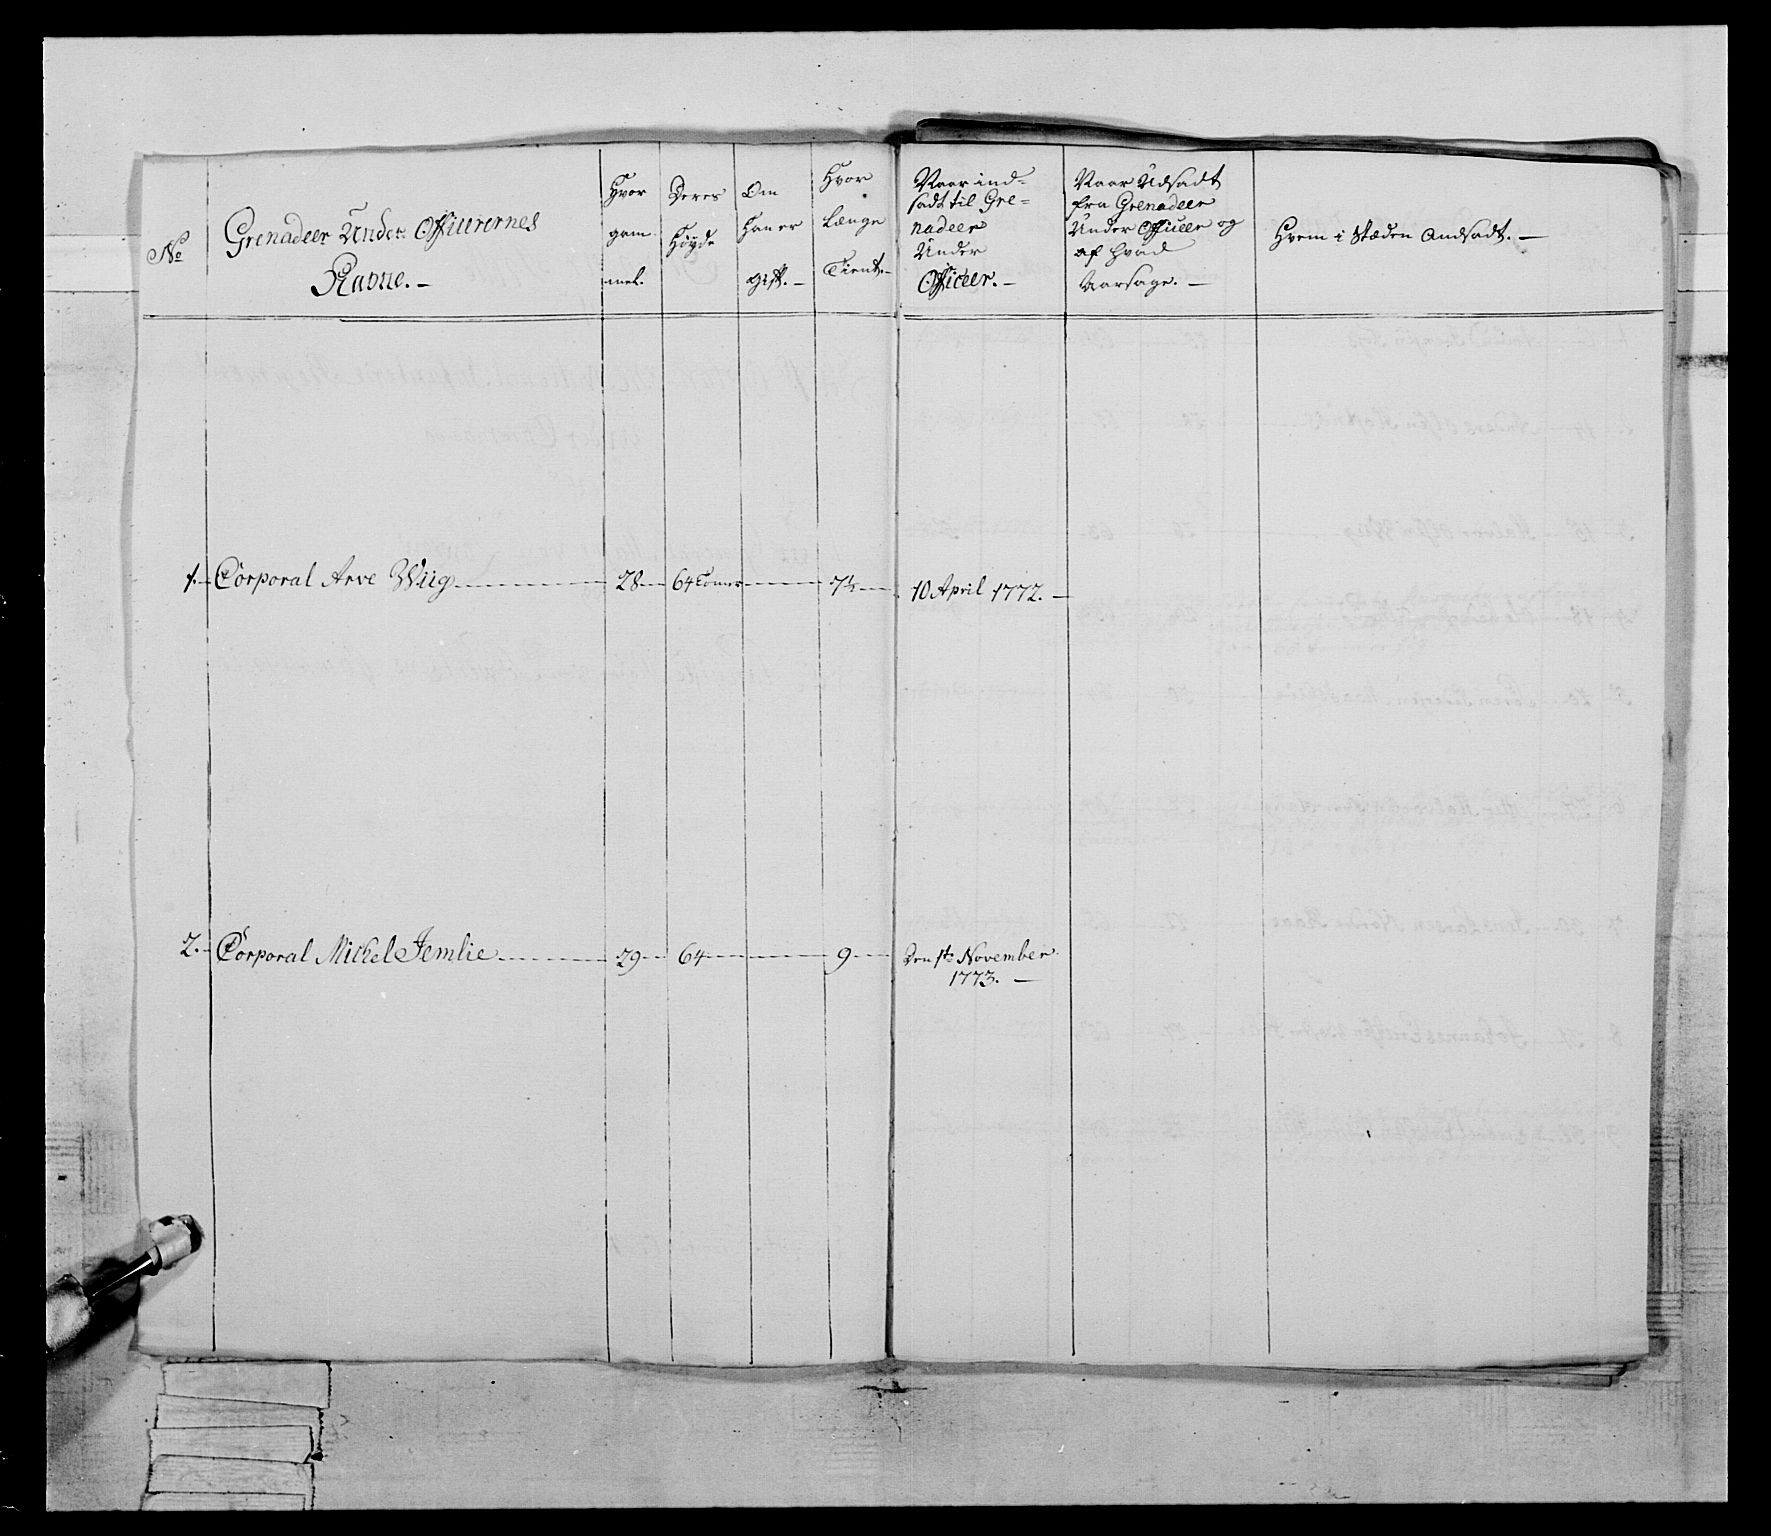 No
Grenadeer Under Officerernes
Navne. —
Hvor
gam
mel.
Deres
Høyde
Om
Han er
Gift. —
Hvor
Længe
Tient. —
Naar ind-
sadt til Gre-
nadeer
Under
Officeer. —
Naar Udsadt
fra Grenadeer
Under Officeer og
af hvad
Aarsage. —
Hvem i Stæden Andsadt. —
1. Corporal Arve Wiig 28 64 Tomer 7½ 10 April 1772. —
2. Corporal Michel Jemlie 29 64 9 Den 1te November
1773. —